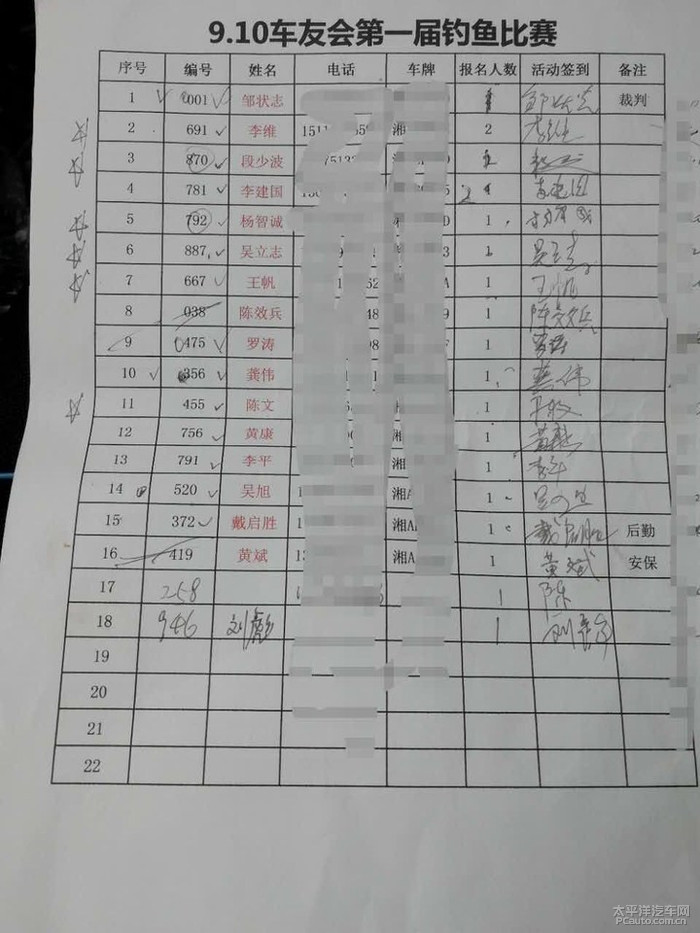 9.10车友会第一届钓鱼比赛
序号 编号 姓名 电话 车牌 报名人数 活动签到 备注
1 001 邹状志 邹状志 裁判
2 691 李维 1511 湘 2 李维
3 870 段少波 75132
4 781 李建国 湘 2 李建国
5 792 杨智诚 D 1
6 887 吴立志 3 1 吴立志
7 667 王帆 52 A 1 王帆
8 038 陈效兵 48 9 1 陈效兵
9 475 罗涛 1 罗涛
10 356 龚伟 1 龚伟
11 455 陈文 湘 1
12 756 黄康 1
13 791 李平 湘 1 李平
14 520 吴旭 1 湘A 1
15 372 戴启胜 1 湘A 1 戴启胜 后勤
16 419 黄斌 湘A 1 黄斌 安保
17 258 1 陈
18 946 刘彪 1 刘彪
19
20
21
22
太平洋汽车网
PCauto.com.cn